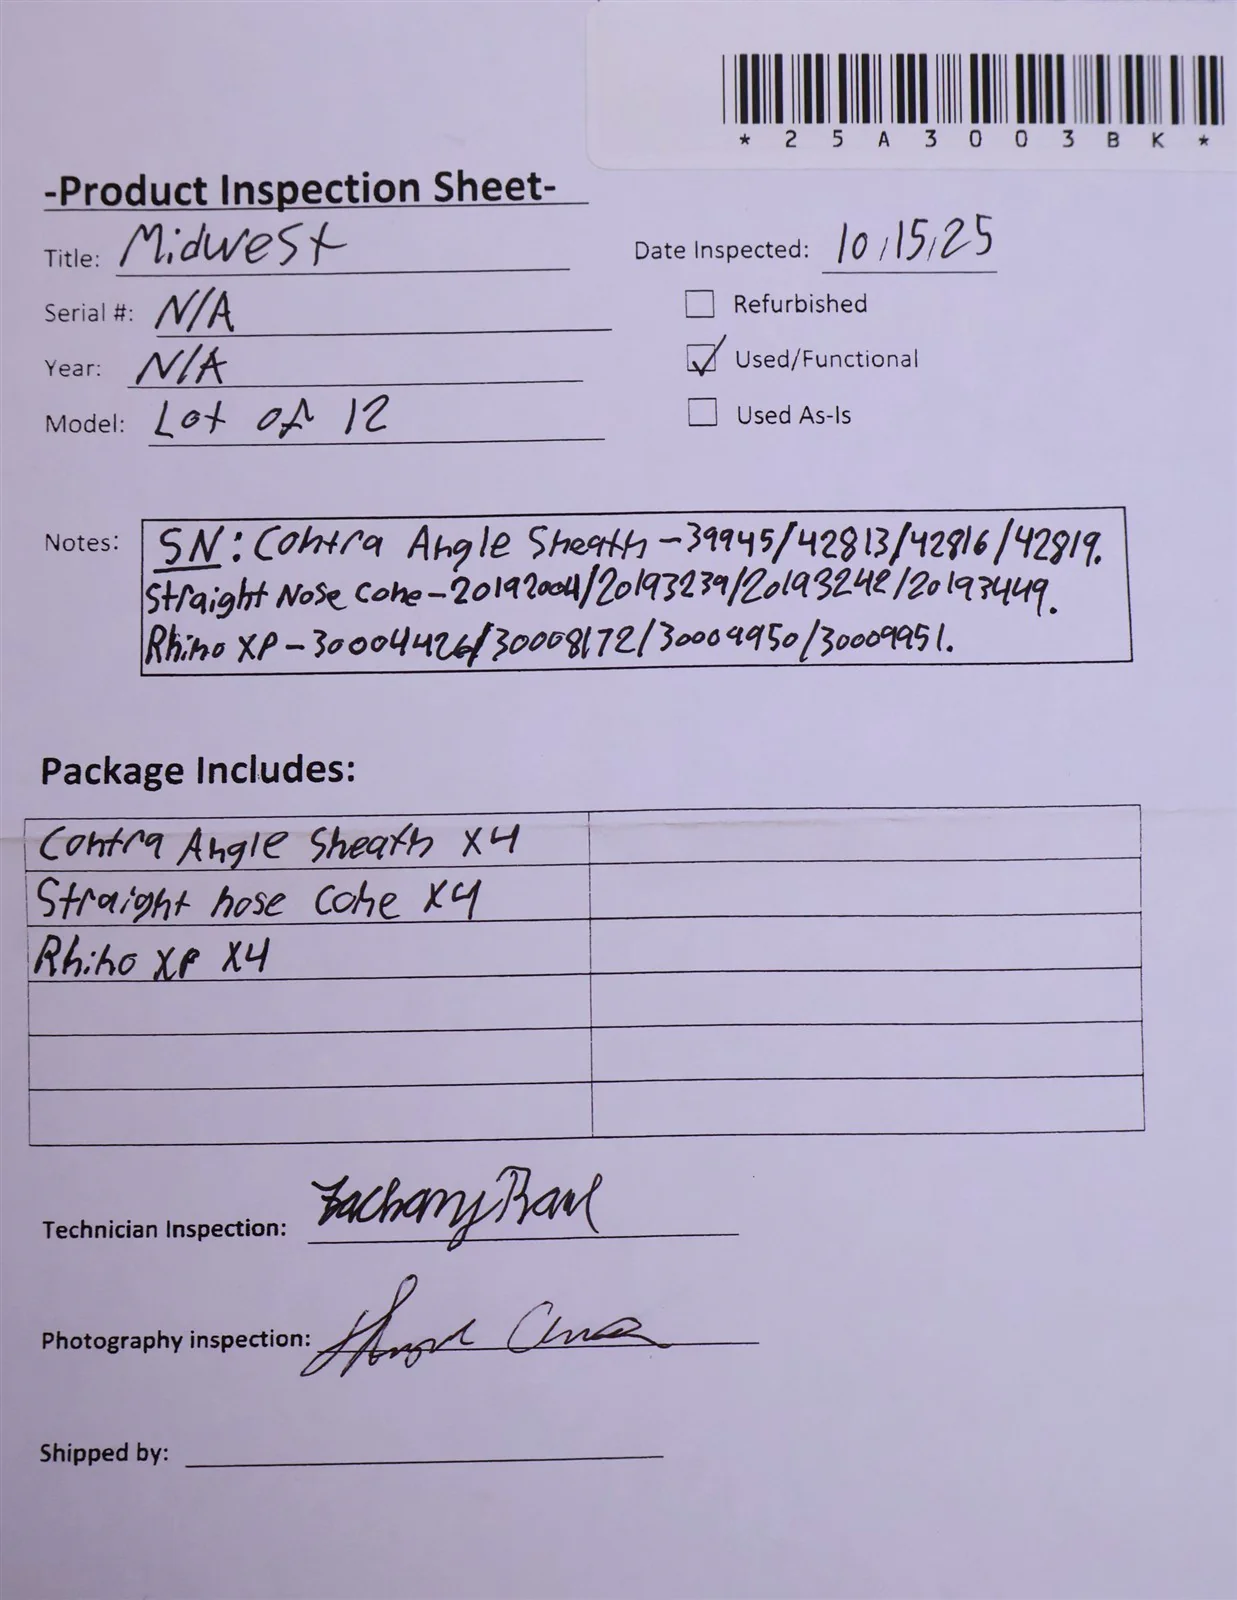 * 2 5 A 3 0 0 3 B K *
-Product Inspection Sheet-
Title: Midwest
Date Inspected: 10/15/25
Serial #: N/A
Refurbished
Year: N/A
Used/Functional
Model: Lot of 12
Used As-Is
Notes: SN: Contra Angle Sheath - 39945/42813/42816/42819.
Straight Nose Cone - 20192004/20193239/20193242/20193449.
Rhino XP - 30004426/30008172/30009950/30009951.
Package Includes:
Contra Angle Sheath X4
Straight nose Cone X4
Rhino XP X4
Technician Inspection: Zachary
Photography inspection:
Shipped by: